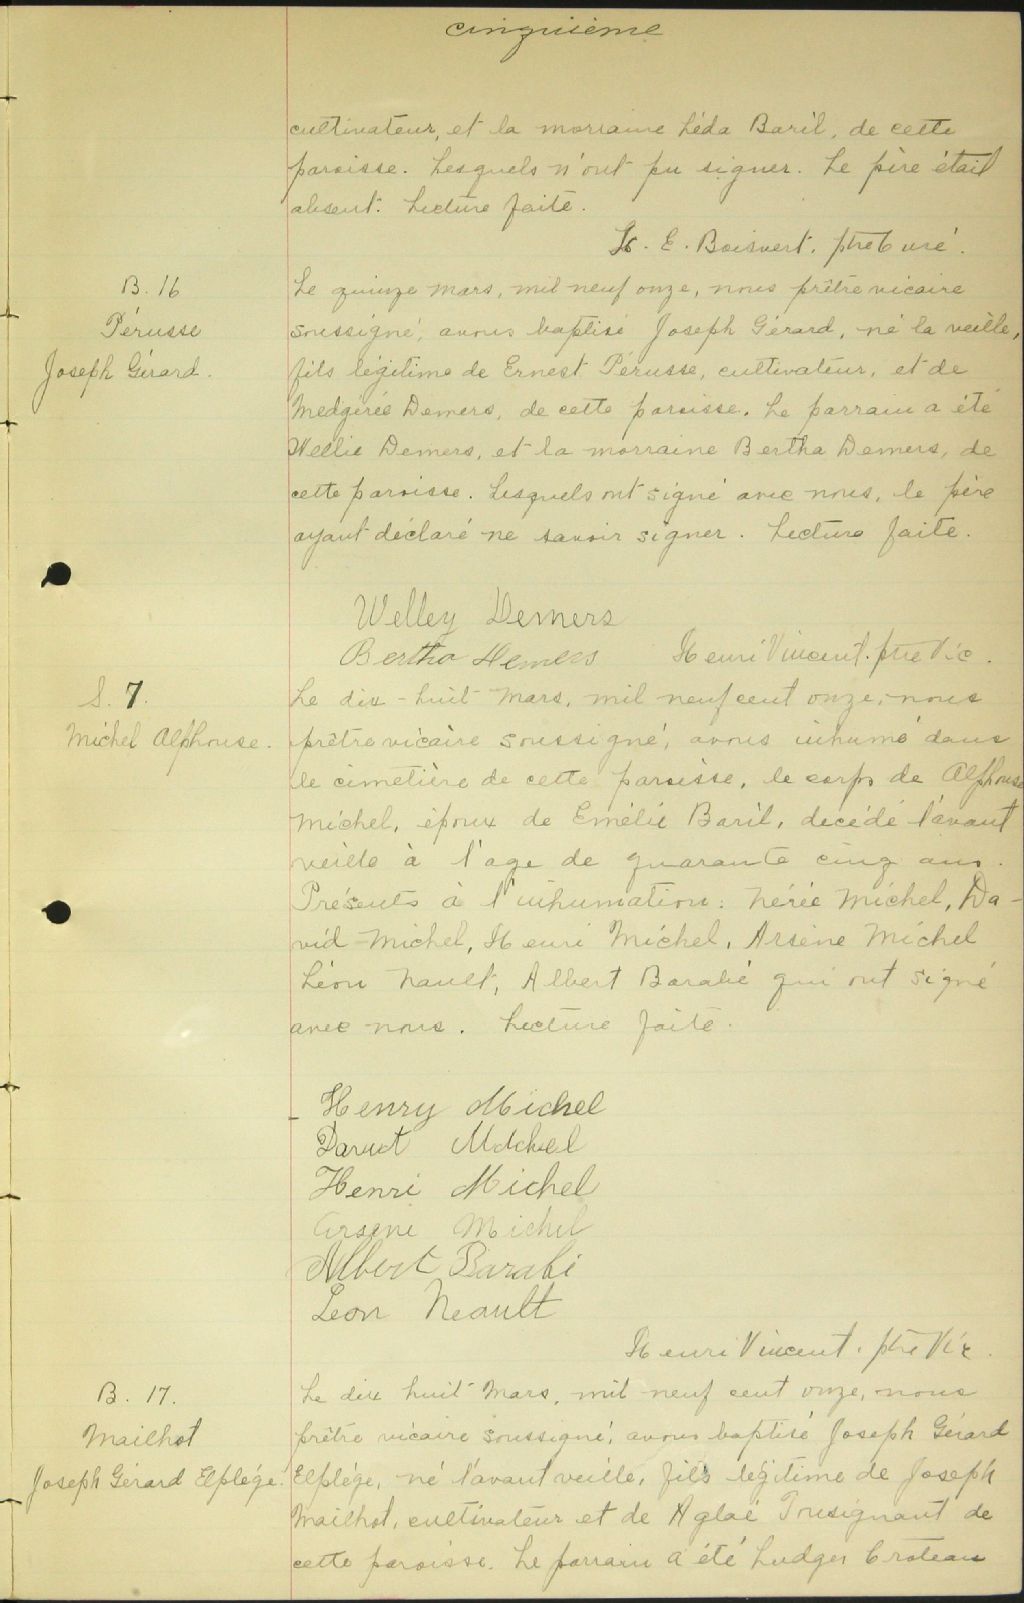 cinquième
cultivateur, et la marraine Léda Baril, de cette
paroisse. Lesquels n'ont pu signer. Le père était
absent. Lecture faite.
E. Boisvert. ptre curé.
B. 16
Pérusse
Joseph Gérard.
Le quinze mars, mil neuf onze, nous prêtre vicaire
soussigné, avons baptisé Joseph Gérard, né la veille,
fils légitime de Ernest Pérusse, cultivateur, et de
Medgirée Demers, de cette paroisse. Le parrain a été
Wellie Demers, et la marraine Bertha Demers, de
cette paroisse. Lesquels ont signé avec nous, le père
ayant déclaré ne savoir signer. Lecture faite.
Welley Demers
Bertha Demers Henri Vincent. ptre Vic.
S. 7.
Michel Alphonse.
Le dix-huit mars, mil neuf cent onze, nous
prêtre vicaire soussigné, avons inhumé dans
le cimetière de cette paroisse, le corps de Alphonse
Michel, époux de Emélie Baril, décédé l'avant
veille à l'age de quarante cinq ans.
Présents à l'inhumation: Nérée Michel, Da-
vid Michel, Henri Michel, Arsène Michel
Léon Nault, Albert Barabé qui ont signé
avec nous. Lecture faite.
Henry Michel
David Michel
Henri Michel
Arsene Michel
Albert Barabé
Leon Neault
Henri Vincent. ptre Vic.
B. 17.
Mailhot
Joseph Gérard Elplége.
Le dix huit Mars, mil neuf cent onze, nous
prêtre vicaire soussigné, avons baptisé Joseph Gérard
Elplége, né l'avant veille, fils légitime de Joseph
Mailhot, cultivateur et de Aglaé Tousignant de
cette paroisse. Le parrain a été Ludger Croteau